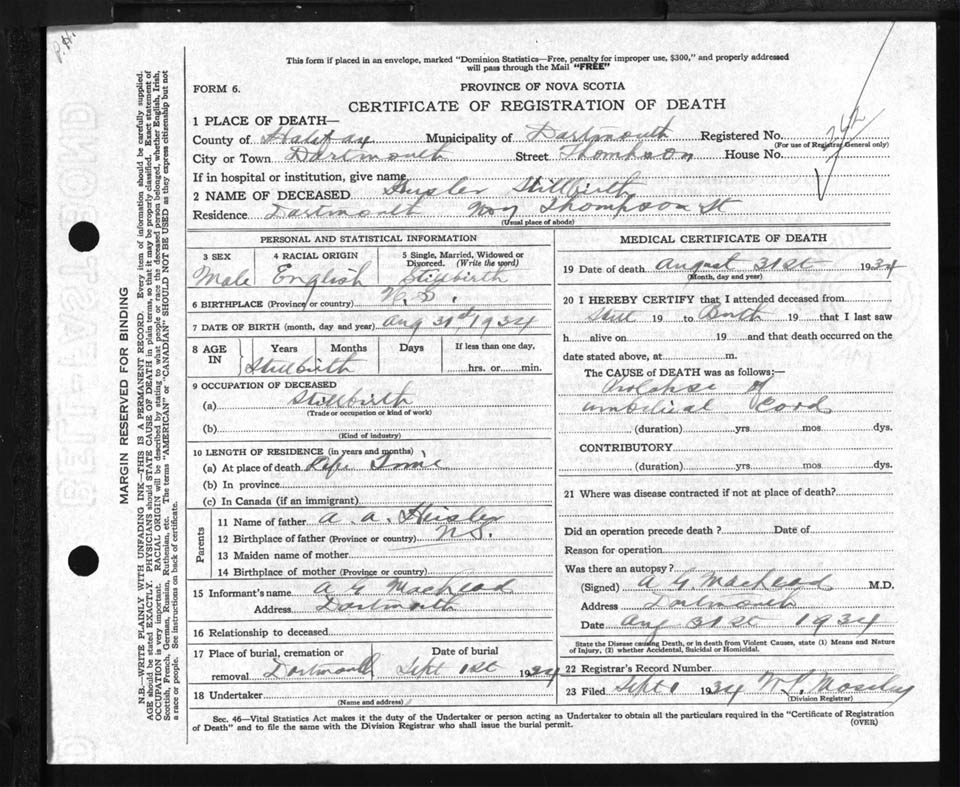 P.H.
This form if placed in an envelope, marked "Dominion Statistics—Free, penalty for improper use, $300," and properly addressed
will pass through the Mail "FREE"
FORM 6.
PROVINCE OF NOVA SCOTIA
CERTIFICATE OF REGISTRATION OF DEATH
1 PLACE OF DEATH—
County of Halifax Municipality of Dartmouth Registered No.
(For use of Registrar General only)
City or Town Dartmouth Street Thompson House No.
If in hospital or institution, give name
2 NAME OF DECEASED Heisler Stillbirth
Residence Dartmouth Thompson St
(Usual place of abode)
PERSONAL AND STATISTICAL INFORMATION
3 SEX 4 RACIAL ORIGIN 5 Single, Married, Widowed or
Divorced. (Write the word)
Male English Stillbirth
6 BIRTHPLACE (Province or country) N. S.
7 DATE OF BIRTH (month, day and year) Aug 31st, 1934
8 AGE IN Years Months Days If less than one day,
Stillbirth hrs. or min.
9 OCCUPATION OF DECEASED
(a) Stillbirth
(Trade or occupation or kind of work)
(b)
(Kind of industry)
10 LENGTH OF RESIDENCE (in years and months)
(a) At place of death Life Time
(b) In province
(c) In Canada (if an immigrant)
Parents
11 Name of father A. A. Heisler
12 Birthplace of father (Province or country) N.S.
13 Maiden name of mother
14 Birthplace of mother (Province or country)
15 Informant's name A G MacLeod
Address Dartmouth
16 Relationship to deceased
17 Place of burial, cremation or Date of burial
removal Dartmouth Sept 1st 1934
18 Undertaker
(Name and address)
MEDICAL CERTIFICATE OF DEATH
19 Date of death August 31st 1934
(Month, day and year)
20 I HEREBY CERTIFY that I attended deceased from
Still 19 to Birth 19 that I last saw
h alive on 19 and that death occurred on the
date stated above, at m.
The CAUSE of DEATH was as follows:—
Prolapse of
umbilical Cord
(duration) yrs. mos. dys.
CONTRIBUTORY
(duration) yrs. mos. dys.
21 Where was disease contracted if not at place of death?
Did an operation precede death? Date of
Reason for operation
Was there an autopsy?
(Signed) A G MacLeod M.D.
Address Dartmouth
Date Aug 31st 1934
State the Disease causing Death, or in death from Violent Causes, state (1) Means and Nature
of Injury, (2) whether Accidental, Suicidal or Homicidal.
22 Registrar's Record Number
23 Filed Sept 1 1934 Mosely
(Division Registrar)
Sec. 46—Vital Statistics Act makes it the duty of the Undertaker or person acting as Undertaker to obtain all the particulars required in the "Certificate of Registration
of Death" and to file the same with the Division Registrar who shall issue the burial permit. (OVER)
MARGIN RESERVED FOR BINDING
N.B.—WRITE PLAINLY WITH UNFADING INK—THIS IS A PERMANENT RECORD. Every item of information should be carefully supplied.
AGE should be stated EXACTLY. PHYSICIANS should STATE CAUSE OF DEATH in plain terms, so that it may be properly classified. Exact statement of
OCCUPATION is very important. RACIAL ORIGIN will be described by stating to what people or race the deceased person belonged, whether English, Irish,
Scottish, French, German, Russian, Ruthenian, etc. The terms "AMERICAN" or "CANADIAN" SHOULD NOT BE USED as they express citizenship but not
a race or people. See instructions on back of certificate.